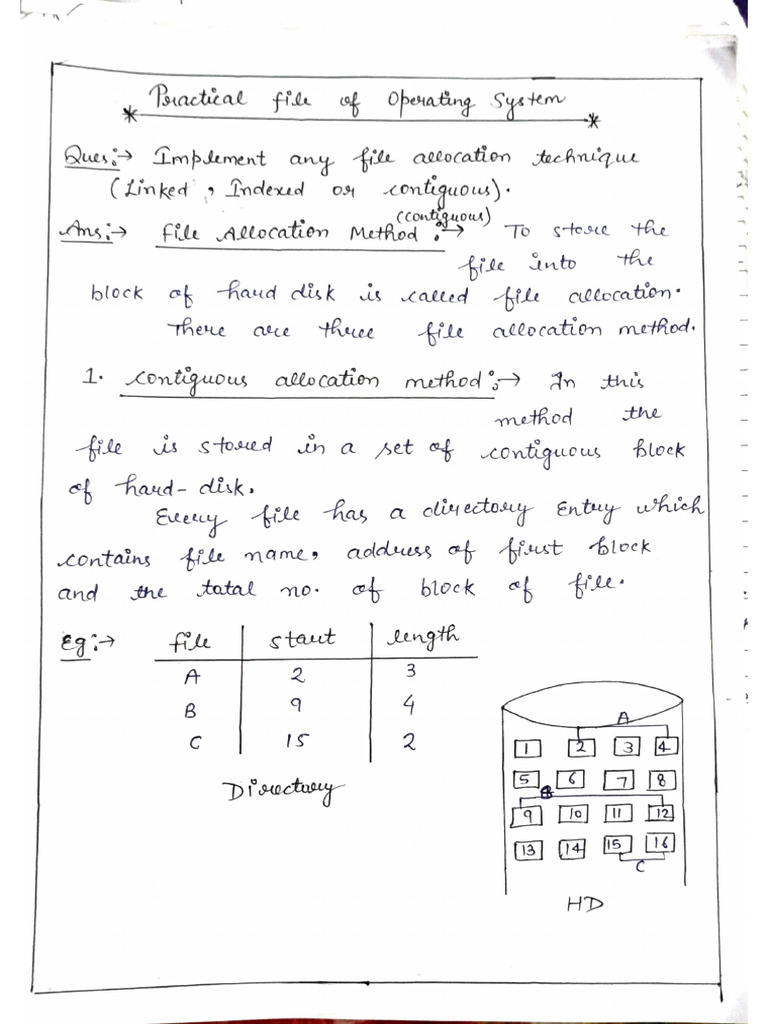 Practical file of Operating System
Ques:→ Implement any file allocation technique
(Linked, Indexed or contiguous).
(contiguous)
Ans:→ File Allocation Method :→ To store the
file into the
block of hard disk is called file allocation.
There are three file allocation method.
1. contiguous allocation method :→ In this
method the
file is stored in a set of contiguous block
of hard-disk.
Every file has a directory Entry which
contains file name, address of first block
and the total no. of block of file.
Eg:→ file start length
A 2 3
B 9 4
C 15 2
Directory
A
1 2 3 4
5 6 7 8
B
9 10 11 12
13 14 15 16
C
HD